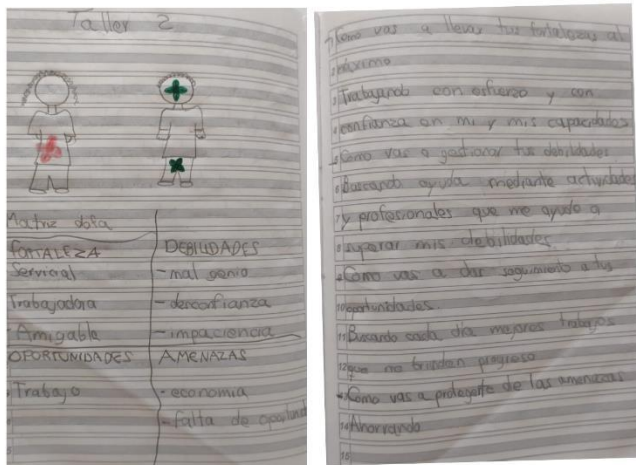 Taller 2
Matriz dofa
FORTALEZA
Servicial
Trabajadora
- Amigable
DEBILIDADES
- mal genio
- desconfianza
- impaciencia
OPORTUNIDADES
Trabajo
AMENAZAS
- economia
- falta de
Como vas a llevar tus fortalezas al
máximo
Trabajando con esfuerzo y con
confianza en mi y mis capacidades
Como vas a gestionar tus debilidades
Buscando ayuda mediante actividades
y profesionales que me ayude a
superar mis debilidades
Como vas a dar seguimiento a tus
oportunidades.
Buscando cada día mejores trabajos
que me brinden progreso
Como vas a protegerte de las amenazas
Ahorrando